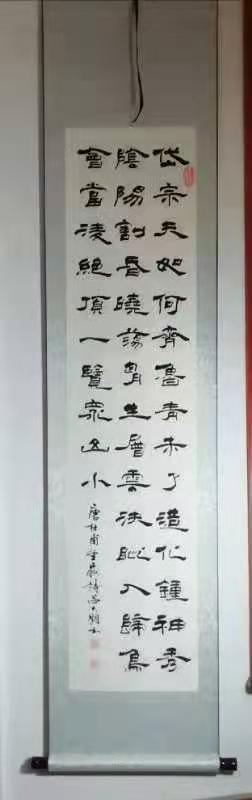 岱宗夫如何齊魯青未了造化鍾神秀
陰陽割昏曉蕩胷生層雲決眥入歸鳥
會當凌絕頂一覽眾山小
唐杜甫望嶽詩